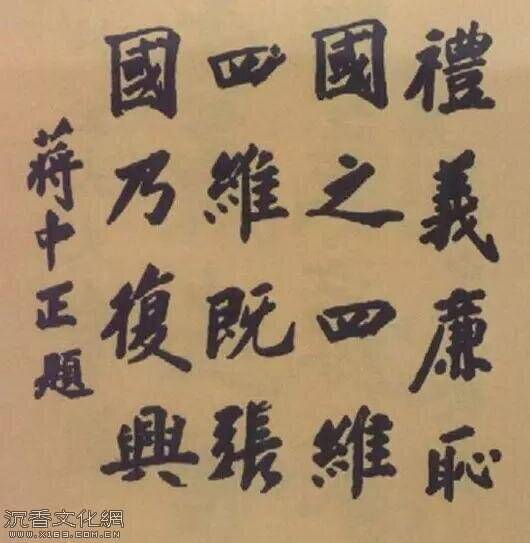 禮義廉恥
國之四維
四維既張
國乃復興
蔣中正題
沉香文化網
WWW.X1G3.COM.CN